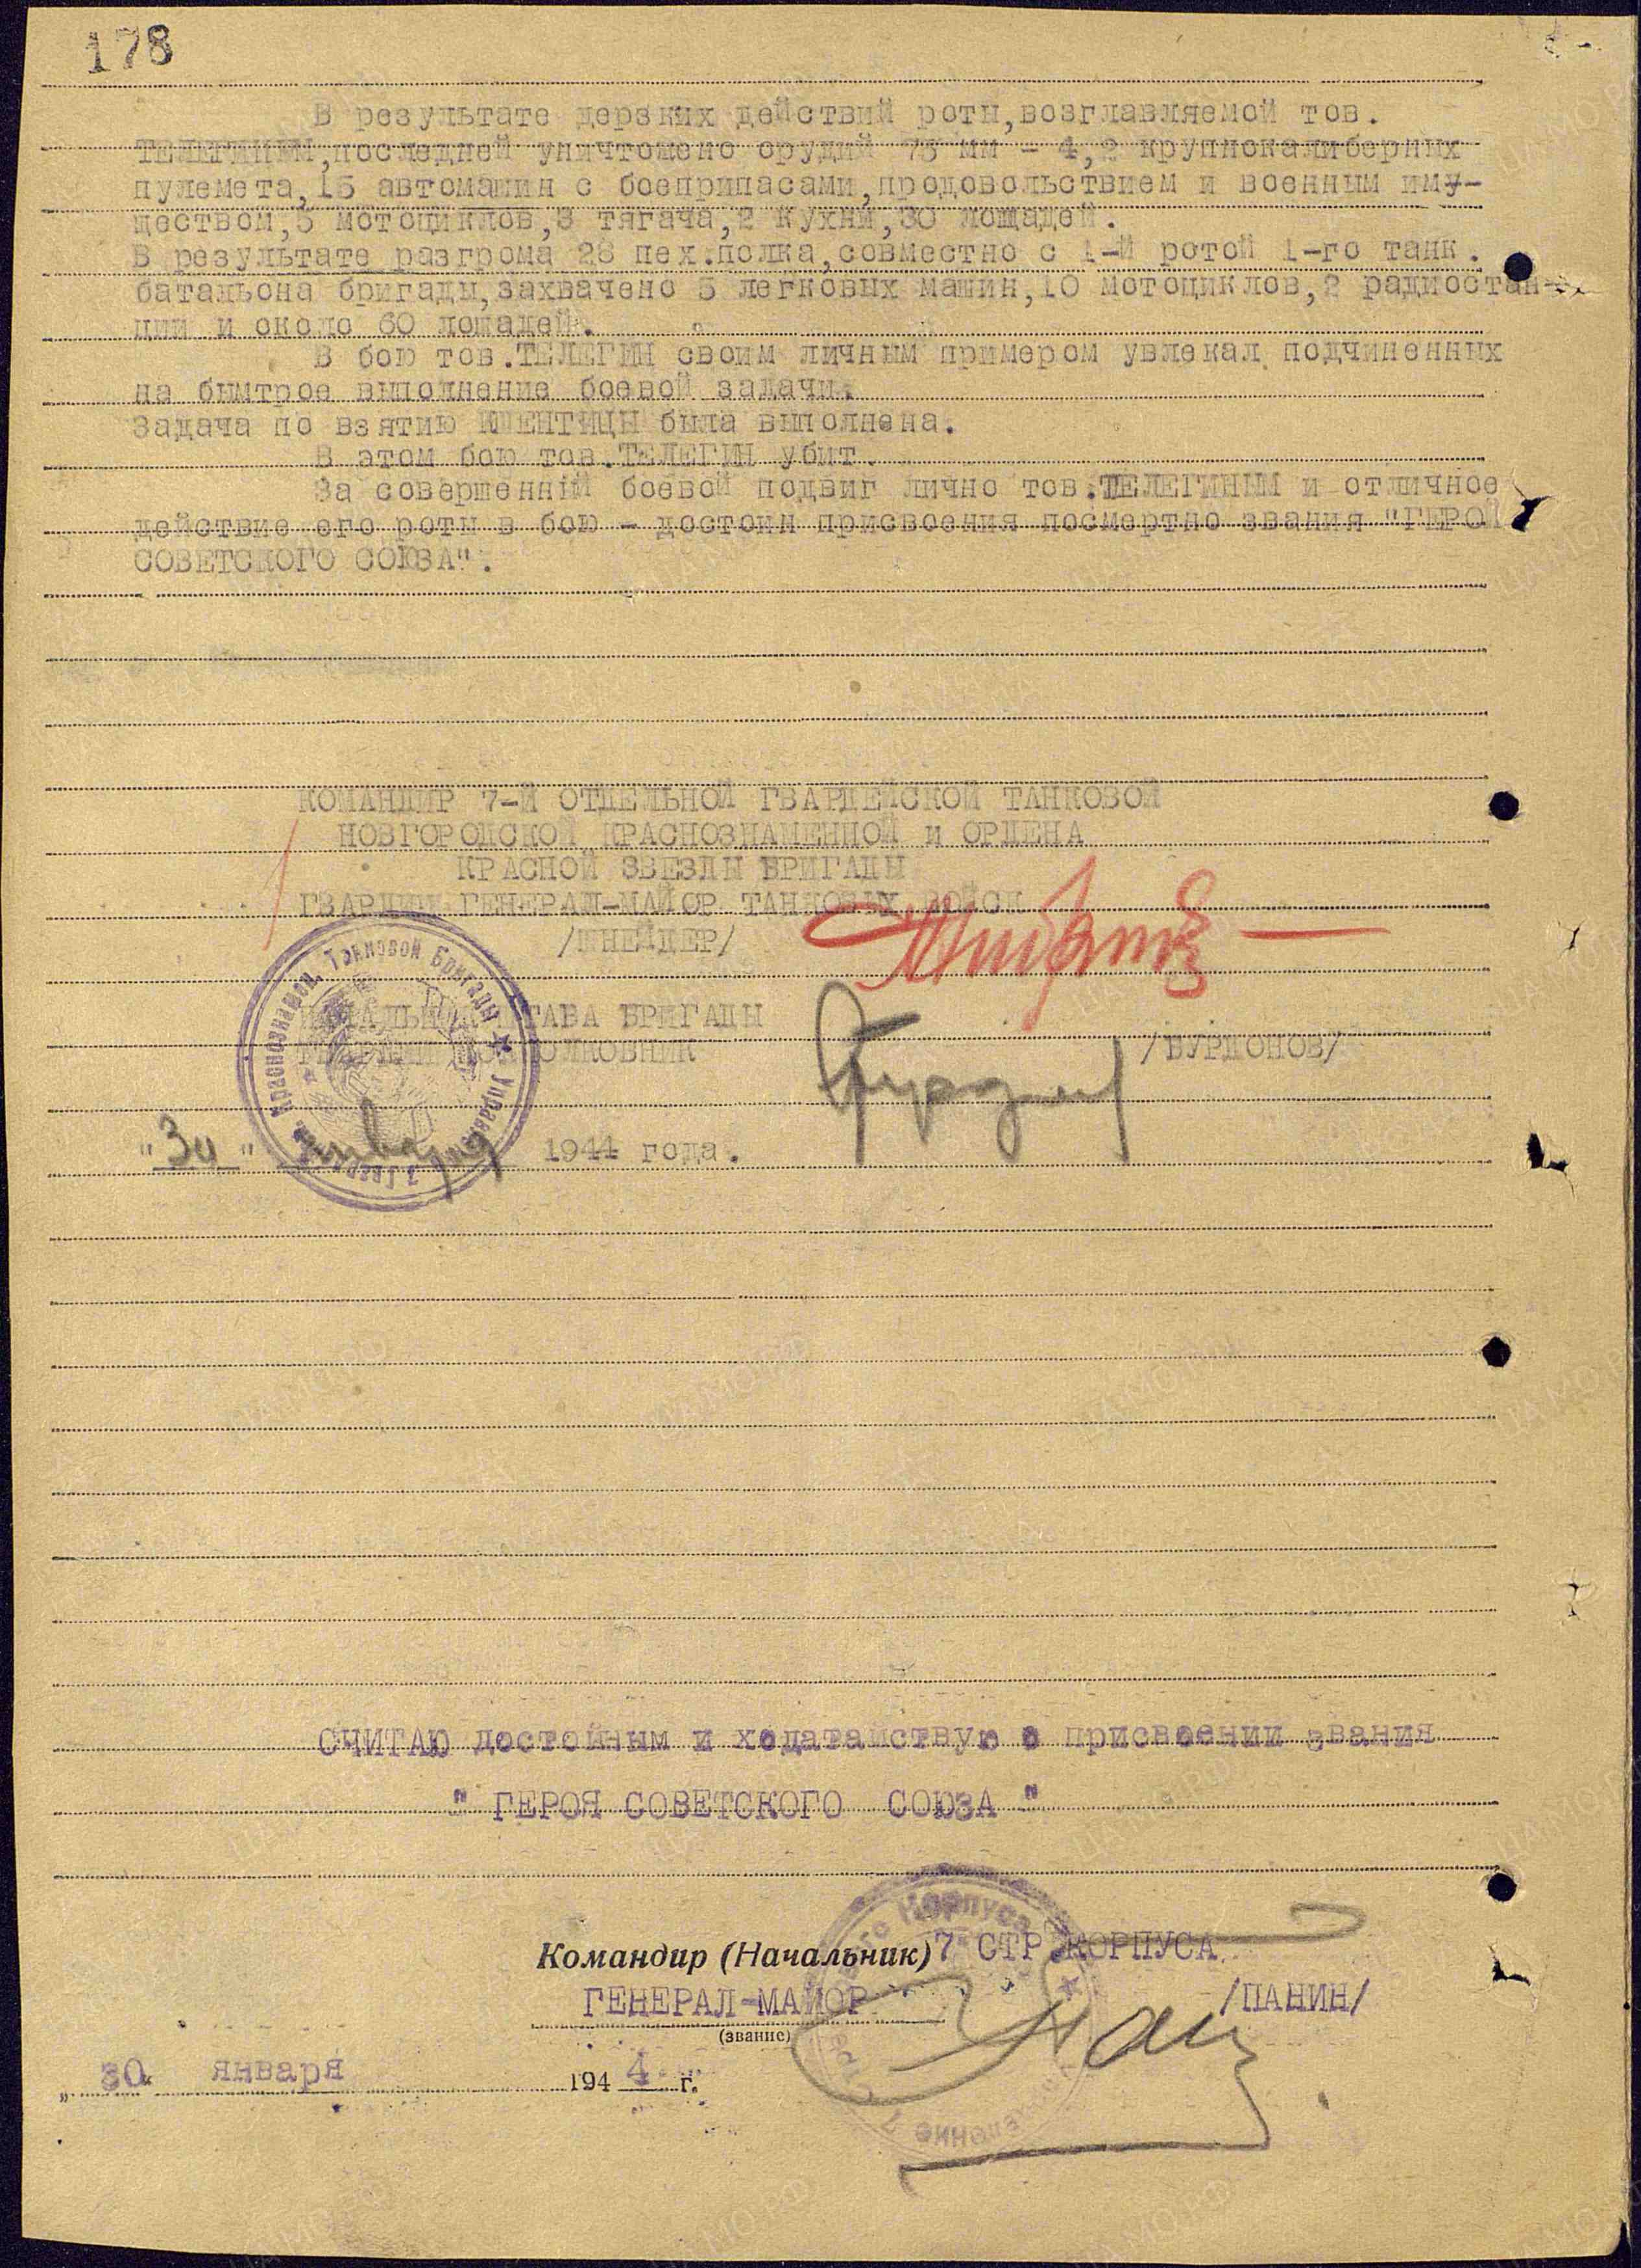 178
В результате дерзких действий роты,возглавляемой тов.
ТЕЛЕГИНЫМ,последней уничтожено орудий 75 мм - 4,2 крупнокалиберных
пулемета,15 автомашин с боеприпасами,продовольствием и военным иму-
ществом,5 мотоциклов,3 тягача,2 кухни,30 лошадей.
В результате разгрома 28 пех.полка,совместно с 1-й ротой 1-го танк.
батальона бригады,захвачено 5 легковых машин,10 мотоциклов,2 радиостан-
ции и около 60 лошадей.
В бою тов.ТЕЛЕГИН своим личным примером увлекал подчиненных
на бымтрое выполнение боевой задачи.
Задача по взятию была выполнена.
В этом бою тов.ТЕЛЕГИН убит.
За совершенній боевой подвиг лично тов.ТЕЛЕГИНЫМ и отличное
действие его роты в бою - достоин присвоения посмертно звания "ГЕРОЙ
СОВЕТСКОГО СОЮЗА".
КОМАНДИР 7-Й ОТДЕЛЬНОЙ ГВАРДЕЙСКОЙ ТАНКОВОЙ
НОВГОРОДСКОЙ КРАСНОЗНАМЕННОЙ и ОРДЕНА
КРАСНОЙ ЗВЕЗДЫ БРИГАДЫ
ГВАРДИИ ГЕНЕРАЛ-МАЙОР ТАНКОВЫХ ВОЙСК
/ШНЕЙДЕР/
НАЧАЛЬНИК ШТАБА БРИГАДЫ
ГВАРДИИ ПОДПОЛКОВНИК /БУРДОНОВ/
"30" января 1944 года.
Краснознамен. Танковой Бригады ★ Управление
СЧИТАЮ достойным и ходатайствую о присвоении звания
" ГЕРОЯ СОВЕТСКОГО СОЮЗА "
Командир (Начальник) 7 СТР.КОРПУСА
ГЕНЕРАЛ-МАЙОР /ПАНИН/
(звание)
„30" января 1944 г.
Корпуса ★ Управление 7 Стр